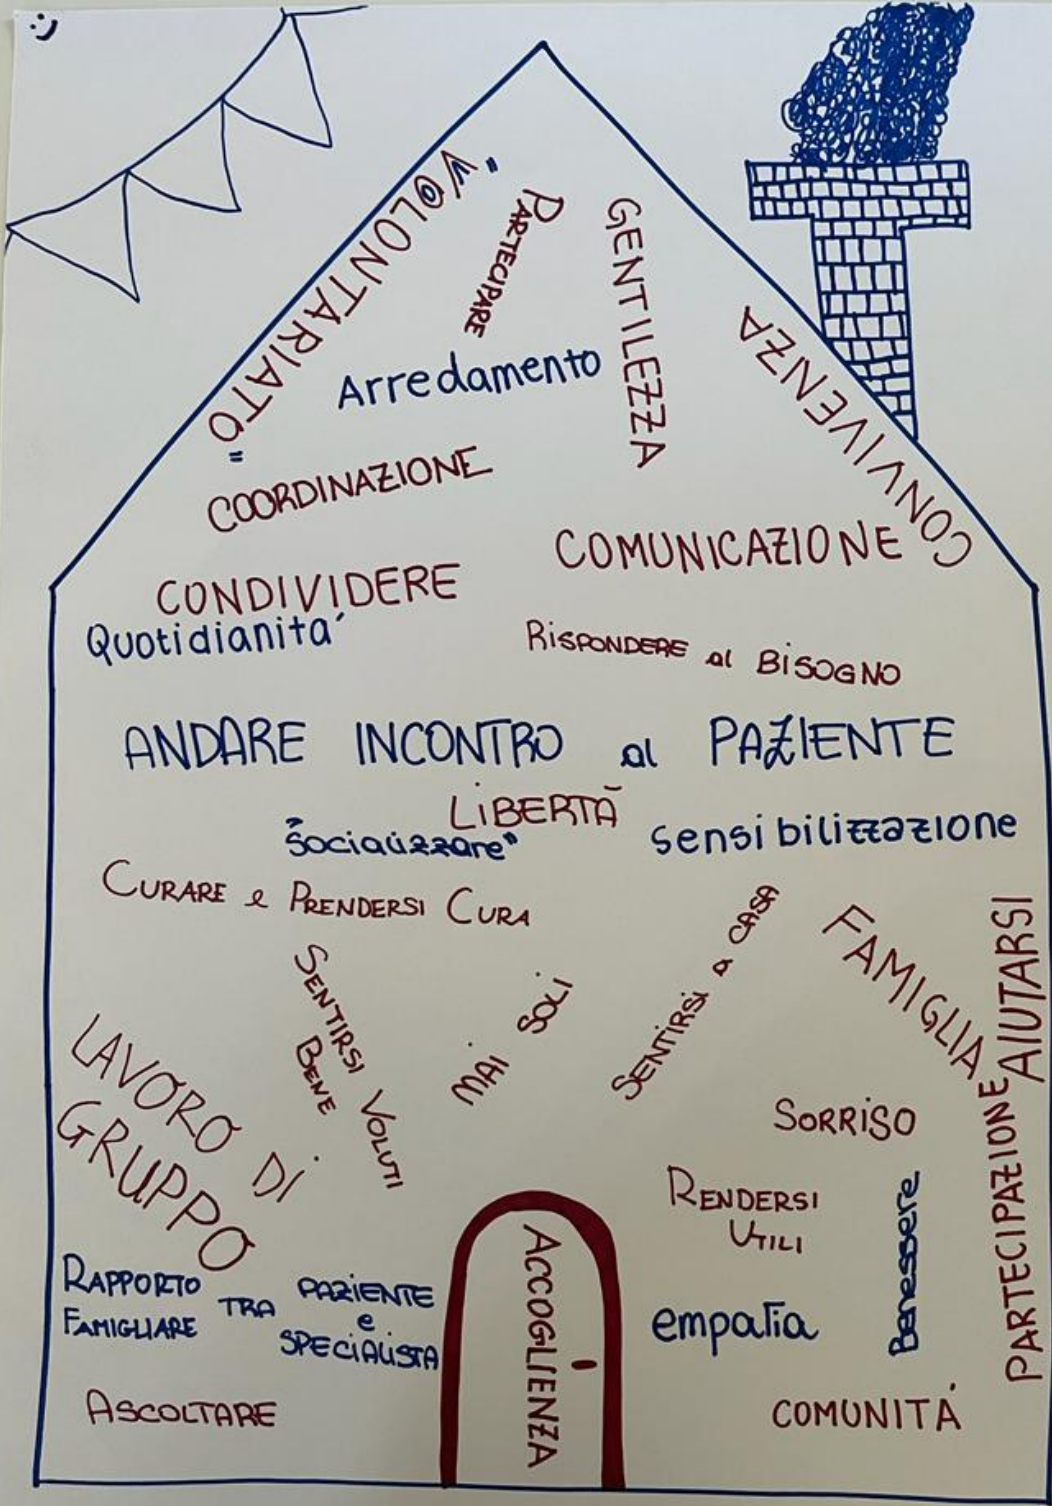 "V@LONTARIATO"
PARTECIPARE
GENTILEZZA
CONVIVENZA
Arredamento
COORDINAZIONE
COMUNICAZIONE
CONDIVIDERE
Quotidianita'
RISPONDERE al BISOGNO
ANDARE INCONTRO al PAZIENTE
LIBERTÀ
"Socializzare"
sensibilizzazione
CURARE e PRENDERSI CURA
SENTIRSI VOLUTI
BENE
MAI SOLI
SENTIRSI a CASA
FAMIGLIA
AIUTARSI
LAVORO DI
GRUPPO
SORRISO
PARTECIPAZIONE
RENDERSI
UTILI
Benessere
RAPPORTO
FAMIGLIARE
TRA
PAZIENTE
e
SPECIALISTA
ACCOGLIENZA
empatia
ASCOLTARE
COMUNITÁ